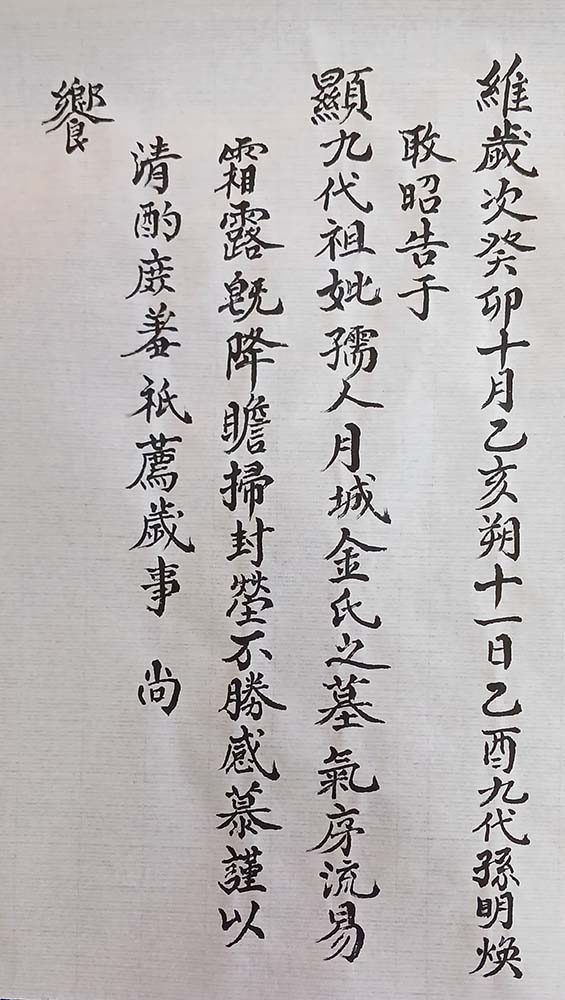 維歲次癸卯十月乙亥朔十一日乙酉九代孫明煥
敢昭告于
顯九代祖妣孺人月城金氏之墓氣序流易
霜露旣降瞻掃封塋不勝感慕謹以
清酌庶羞祇薦歲事 尚
饗